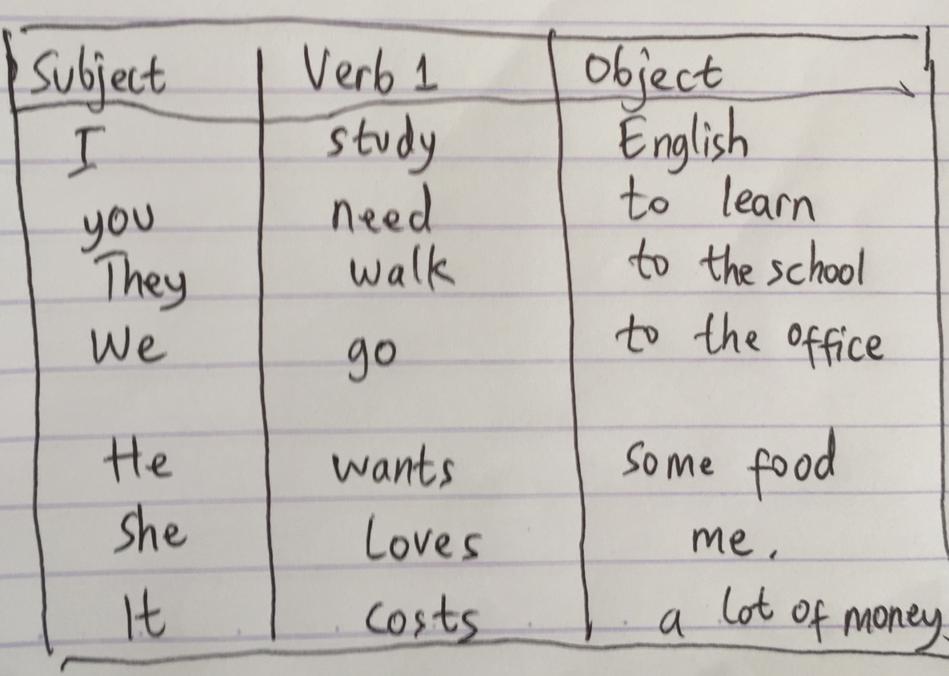 Subject Verb 1 Object
I study English
you need to learn
They walk to the school
We go to the office
He wants some food
She Loves me.
It costs a lot of money.